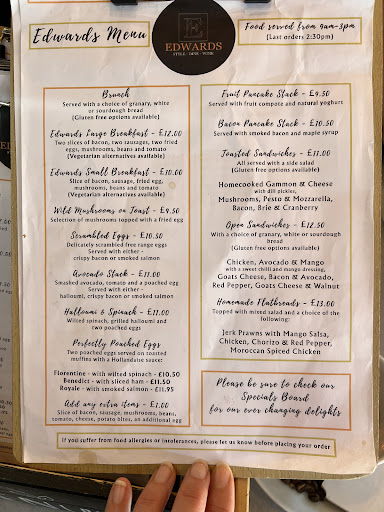 Edwards Menu
E
EDWARDS
STYLE · DINE · WINE
Food served from 9am-3pm
(Last orders 2:30pm)
Brunch
Served with a choice of granary, white
or sourdough bread
(Gluten free options available)
Edwards Large Breakfast - £12.00
Two slices of bacon, two sausages, two fried
eggs, mushrooms, beans and tomato
(Vegetarian alternatives available)
Edwards Small Breakfast - £10.00
Slice of bacon, sausage, fried egg,
mushrooms, beans and tomato
(Vegetarian alternatives available)
Wild Mushrooms on Toast - £9.50
Selection of mushrooms topped with a fried egg
Scrambled Eggs - £10.50
Delicately scrambled free range eggs
Served with either -
crispy bacon or smoked salmon
Avocado Stack - £11.00
Smashed avocado, tomato and a poached egg
Served with either -
halloumi, crispy bacon or smoked salmon
Halloumi & Spinach - £11.00
Wilted spinach, grilled halloumi and
two poached eggs
Perfectly Poached Eggs
Two poached eggs served on toasted
muffins with a Hollandaise sauce:
Florentine - with wilted spinach - £10.50
Benedict - with sliced ham - £11.50
Royale - with smoked salmon - £11.95
Add any extra items - £1.00
Slice of bacon, sausage, mushrooms, beans,
tomato, cheese, potato bites, an additional egg
Fruit Pancake Stack - £9.50
Served with fruit compote and natural yoghurt
Bacon Pancake Stack - £10.50
Served with smoked bacon and maple syrup
Toasted Sandwiches - £11.00
All served with a side salad
(Gluten free options available)
Homecooked Gammon & Cheese
with dill pickles,
Mushrooms, Pesto & Mozzarella,
Bacon, Brie & Cranberry
Open Sandwiches - £12.50
With a choice of granary, white or sourdough
bread
(Gluten free options available)
Chicken, Avocado & Mango
with a sweet chilli and mango dressing,
Goats Cheese, Bacon & Avocado,
Red Pepper, Goats Cheese & Walnut
Homemade Flatbreads - £13.00
Topped with mixed salad and a choice of the
following:
Jerk Prawns with Mango Salsa,
Chicken, Chorizo & Red Pepper,
Moroccan Spiced Chicken
Please be sure to check our
Specials Board
for our ever changing delights
If you suffer from food allergies or intolerances, please let us know before placing your order